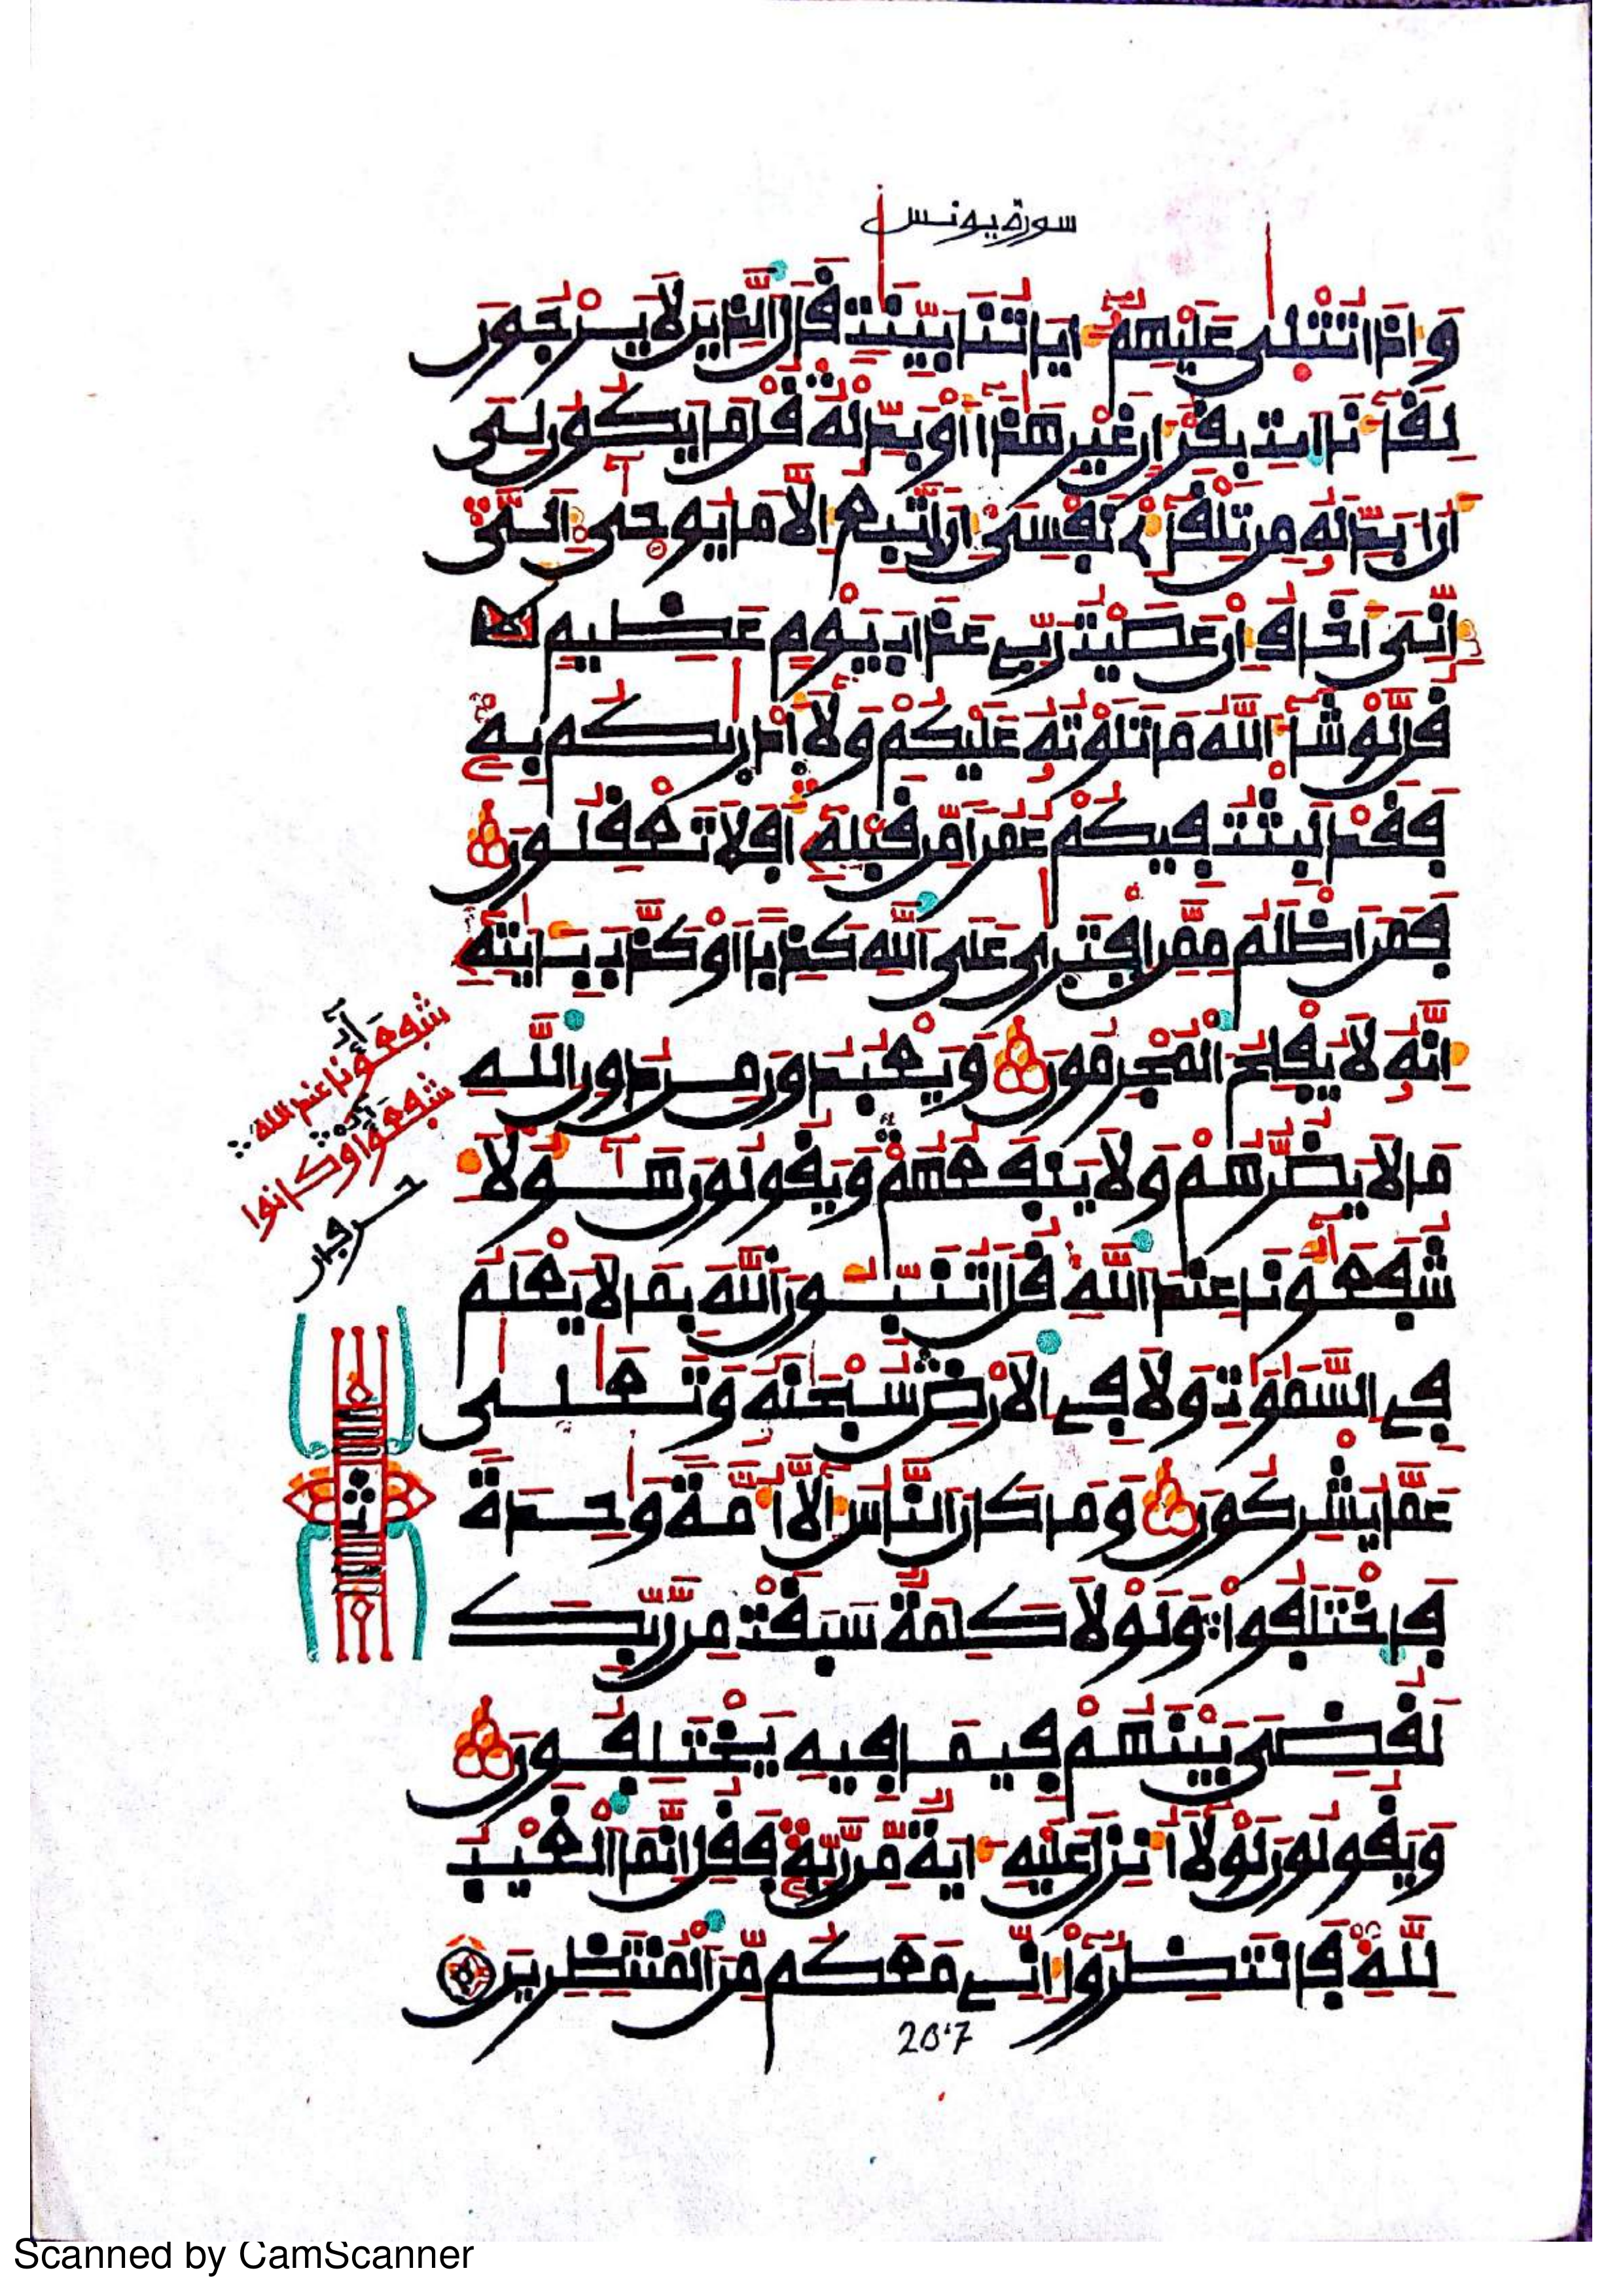 سورة يونس
وَإِذَا تُتْلَىٰ عَلَيْهِمُۥٓ ءَايَاتُنَا بَيِّنَٰتٖ قَالَ ٱلذِينَ لَا يَرْجُونَ
لِقَآءَنَا ٱئْتِ بِقُرْءَانٍ غَيْرِ هَٰذَآ أَوْ بَدِّلْهُ قُلْ مَا يَكُونُ لِيَ
أَنْ أُبَدِّلَهُۥ مِن تِلْقَآءِۓ نَفْسِيَ إِنْ أَتَّبِعُ إِلَّا مَا يُوحَىٰٓ إِلَيَّ
إِنِّيَ أَخَافُ إِنْ عَصَيْتُ رَبِّے عَذَابَ يَوْمٍ عَظِيمٖ
قُل لَّوْ شَآءَ ٱللَّهُ مَا تَلَوْتُهُۥ عَلَيْكُمْ وَلَآ أَدْر۪ىٰكُم بِهِۦ
فَقَدْ لَبِثْتُ فِيكُمْ عُمُراً مِّن قَبْلِهِۦٓ أَفَلَا تَعْقِلُونَ
فَمَنَ اَظْلَمُ مِمَّنِ ٱفْتَر۪ىٰ عَلَى ٱللَّهِ كَذِباً اَوْ كَذَّبَ بِـَٔايَٰتِهِۦٓ
إِنَّهُۥ لَا يُفْلِحُ ٱلْمُجْرِمُونَ وَيَعْبُدُونَ مِن دُونِ ٱللَّهِ
مَا لَا يَضُرُّهُمْ وَلَا يَنفَعُهُمْ وَيَقُولُونَ هَٰٓؤُلَآءِ
شُفَعَٰٓؤُنَا عِندَ ٱللَّهِ قُلَ اَتُنَبِّـُٔونَ ٱللَّهَ بِمَا لَا يَعْلَمُ
فِے ٱلسَّمَٰوَٰتِ وَلَا فِے ٱلَارْضِ سُبْحَٰنَهُۥ وَتَعَٰلَىٰ
عَمَّا يُشْرِكُونَ وَمَا كَانَ ٱلنَّاسُ إِلَّآ أُمَّةً وَٰحِدَةً
فَٱخْتَلَفُواْ وَلَوْلَا كَلِمَةٌ سَبَقَتْ مِن رَّبِّكَ
لَقُضِيَ بَيْنَهُمْ فِيمَا فِيهِ يَخْتَلِفُونَ
وَيَقُولُونَ لَوْلَآ أُنزِلَ عَلَيْهِ ءَايَةٌ مِّن رَّبِّهِۦ فَقُلِ اِنَّمَا ٱلْغَيْبُ
لِلَّهِ فَٱنتَظِرُوٓاْ إِنِّے مَعَكُم مِّنَ ٱلْمُنتَظِرِينَ
شفعٰٓؤنا عند الله
شفعٰٓؤا وكانوا
ثمن
267
Scanned by CamScanner